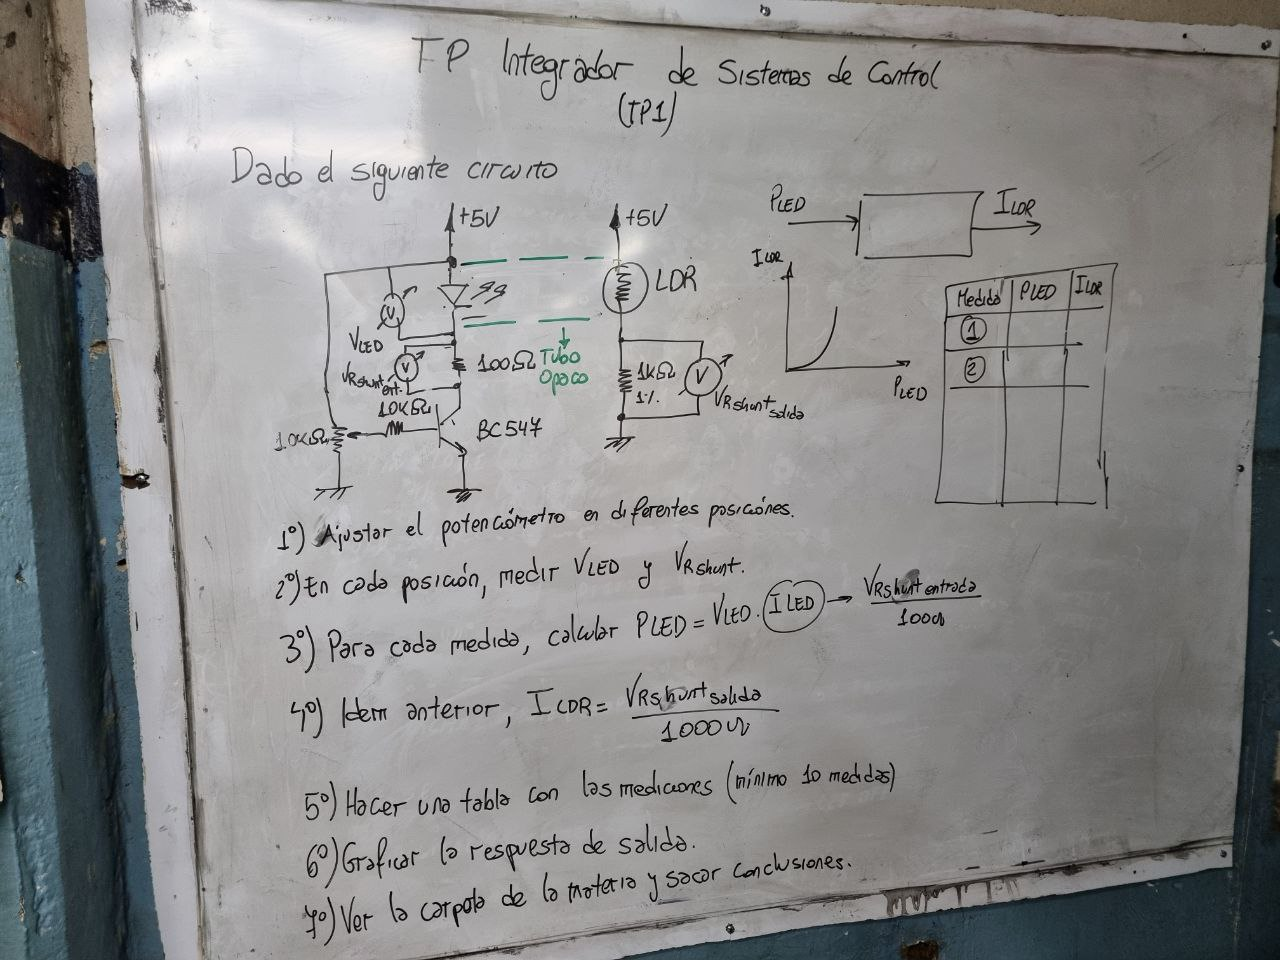 TP Integrador de Sistemas de Control
(TP1)
Dado el siguiente circuito
+5V
+5V
PLED
ILDR
ILDR
PLED
Medida PLED ILDR
1
2
V
VLED
V
VRshunt
ent.
100Ω
Tubo
Opaco
LDR
1KΩ
1%
V
VRshunt salida
10KΩ
10KΩ
BC547
1º) Ajustar el potenciómetro en diferentes posiciónes.
2º) En cada posición, medir VLED y VRshunt.
3º) Para cada medida, calcular PLED = VLED . ILED → VRshunt entrada
100Ω
4º) Idem anterior, ILDR = VRshunt salida
1000Ω
5º) Hacer una tabla con las mediciones (mínimo 10 medidas)
6º) Graficar la respuesta de salida.
7º) Ver la carpeta de la materia y sacar conclusiones.